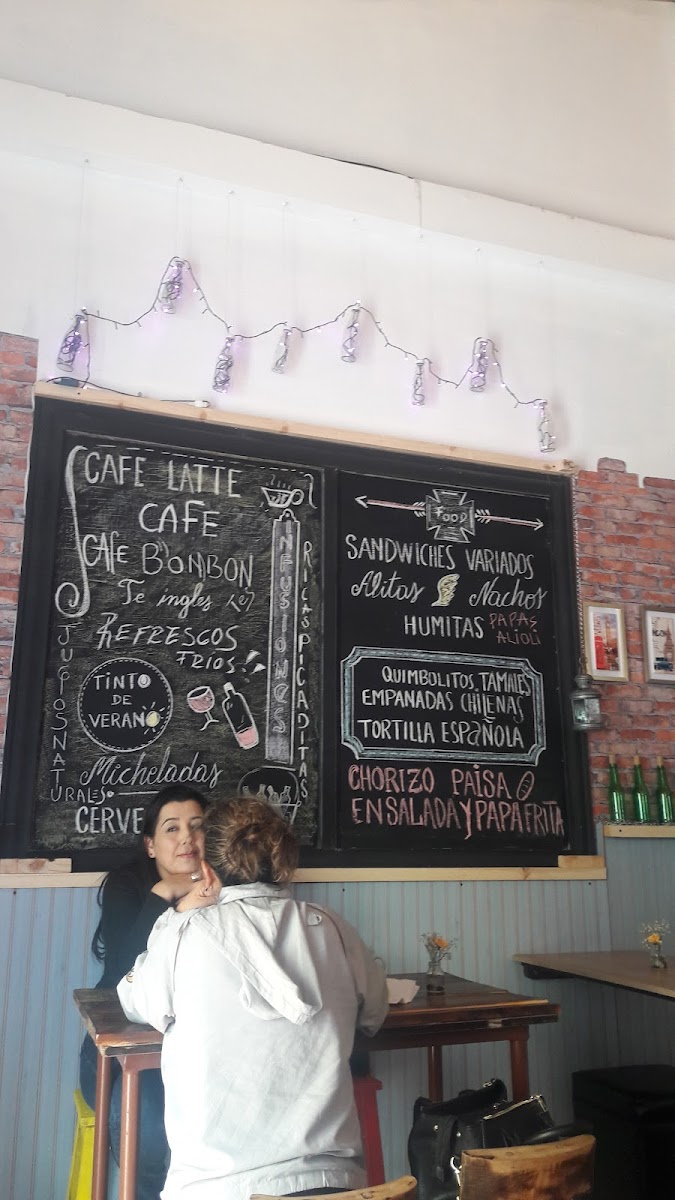 CAFE LATTE
CAFE
CAFE BONBON
Te ingles
REFRESCOS
FRIOS
TINTO
DE
VERANO
Micheladas
CERVE
JUGOS NATURALES
INFUSIONES
RICAS PICADITAS
FOOD
SANDWICHES VARIADOS
Alitas Nachos
HUMITAS PAPAS
ALIOLI
QUIMBOLITOS, TAMALES
EMPANADAS CHILENAS
TORTILLA ESPAÑOLA
CHORIZO PAISA
ENSALADA Y PAPA FRITA